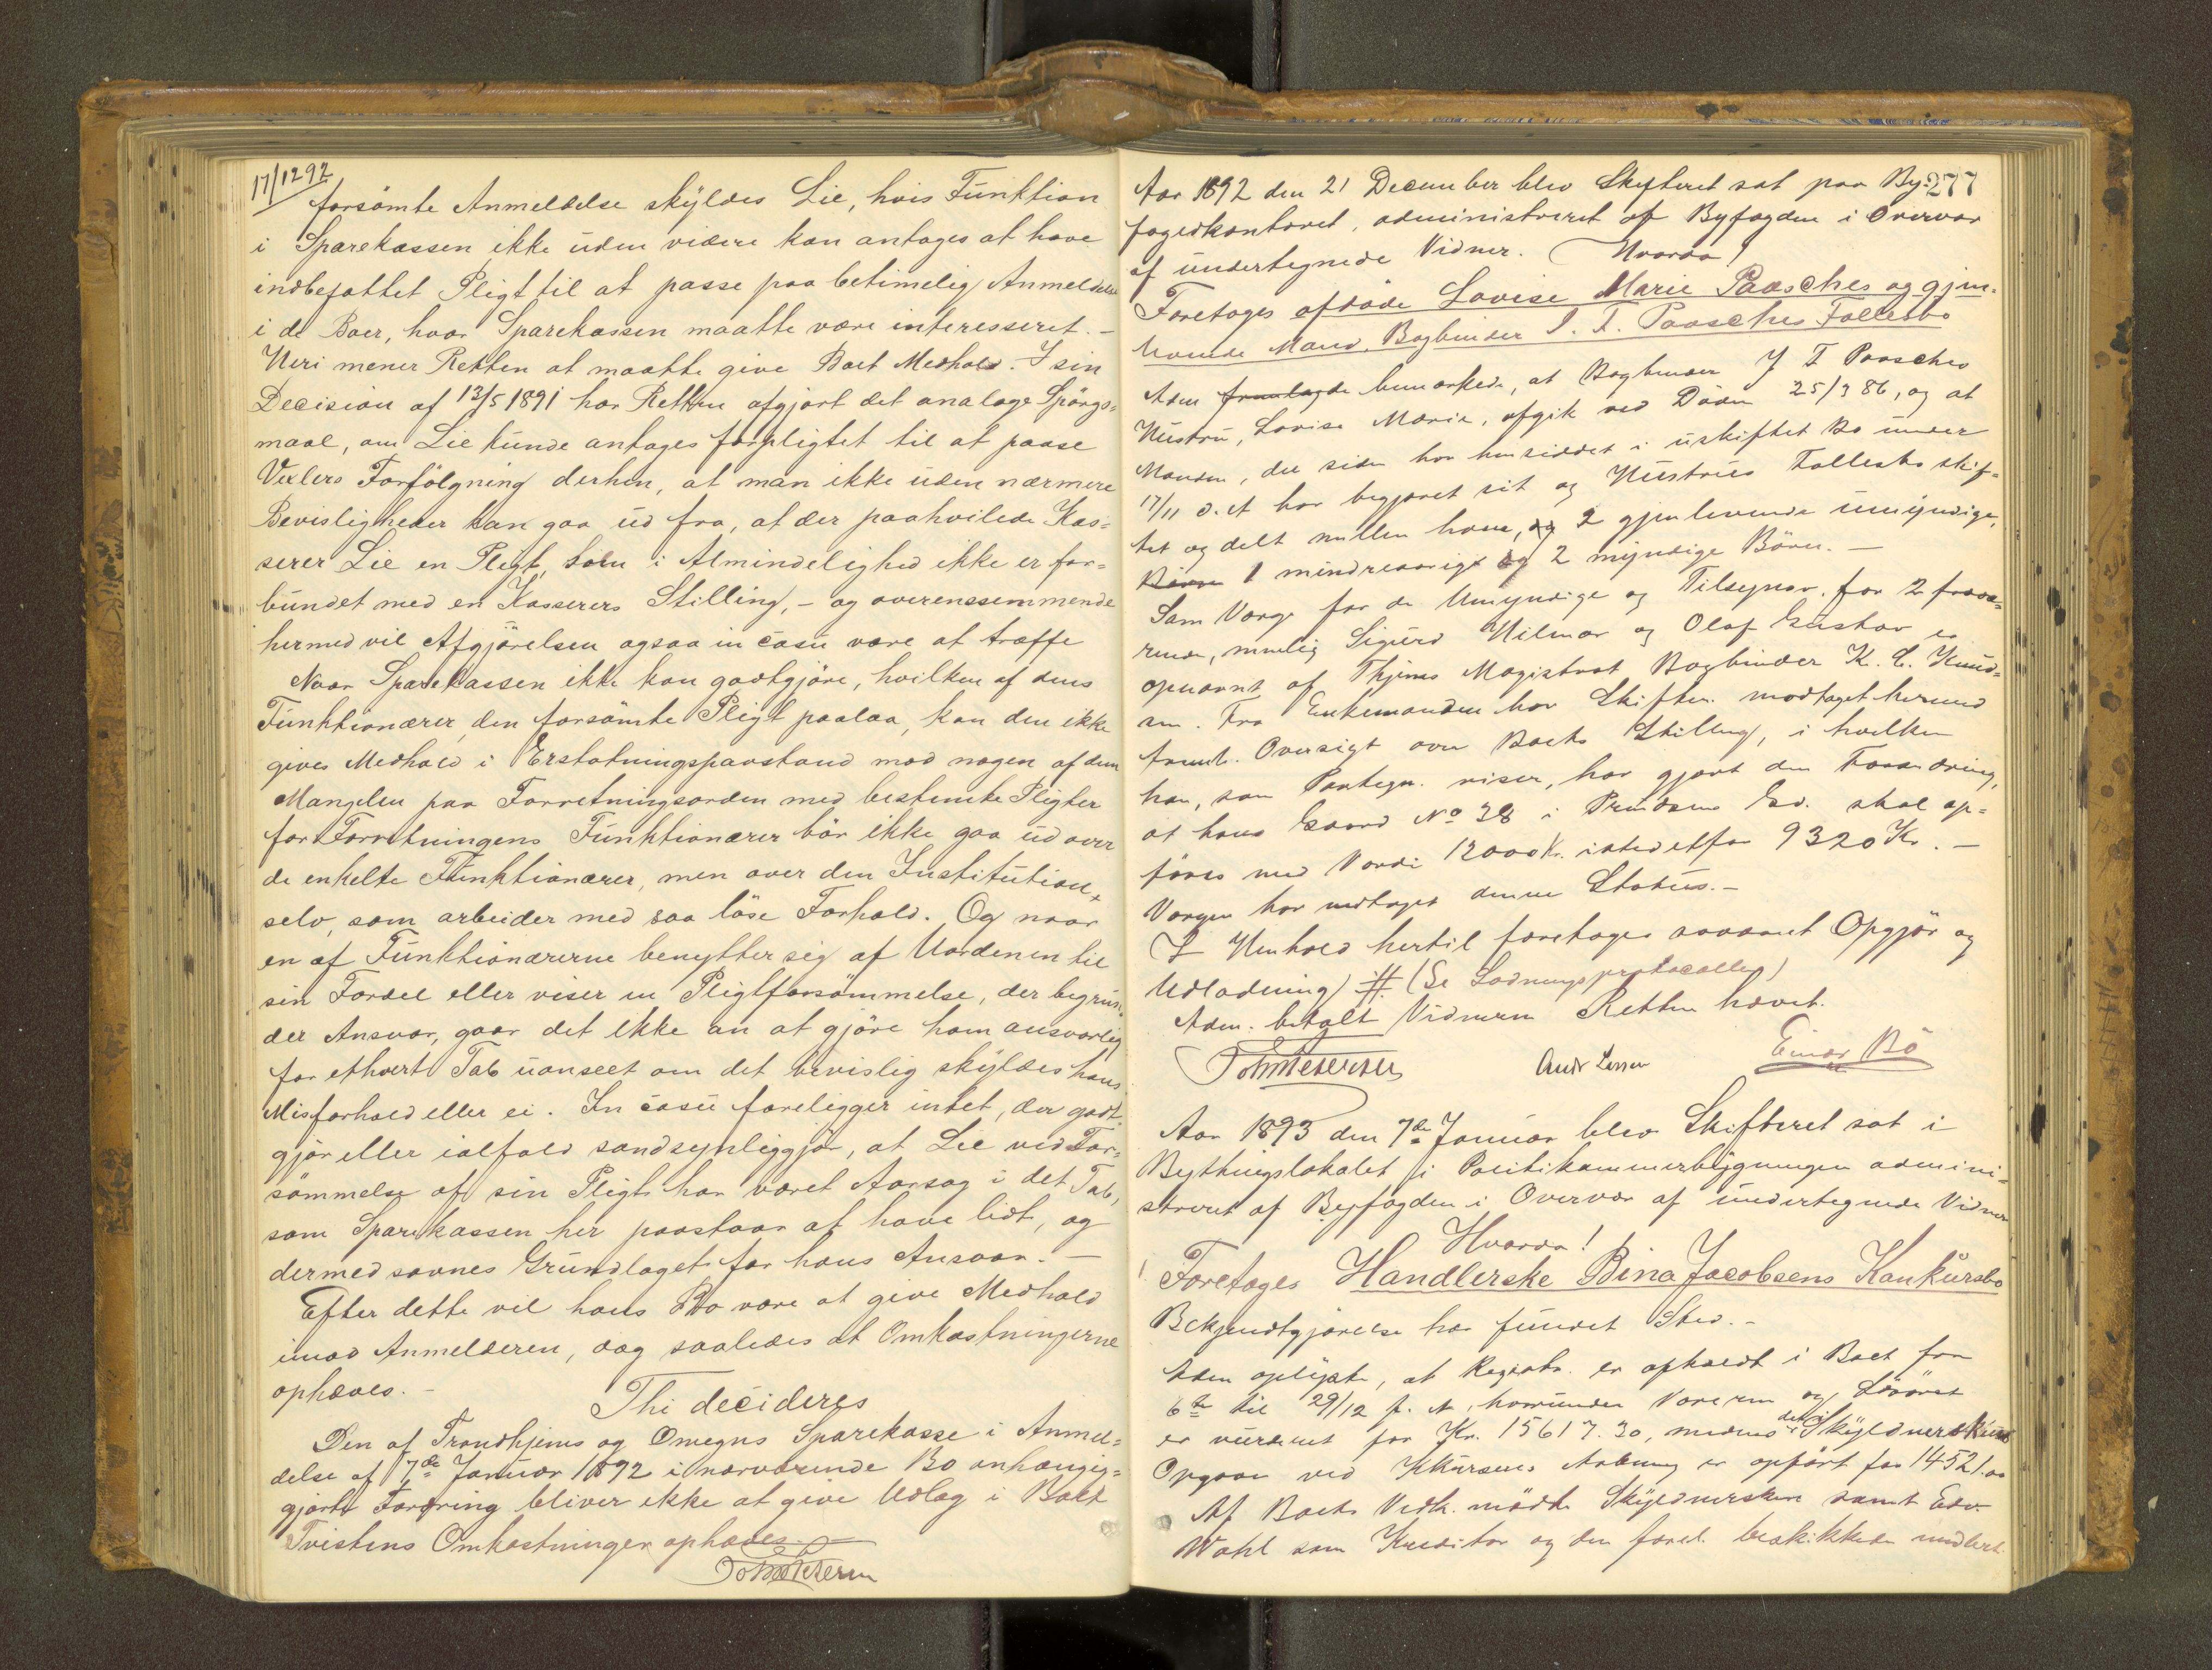 17/12 92
forsömte Anmeldelse skyldes Lie, hvis Funktion
i Sparekassen ikke uden videre kan antages at have
indbefattet Pligt til at passe paa betimelig Anmeldelse
i de Boer, hvor Sparekassen maatte være interesseret. –
Heri mener Retten at maatte give Boet Medhold. I sin
Decision af 13/5 1891 har Retten afgjort det analoge Spörgs=
maal, om Lie kunde antages forpligtet til at paase
Vexlers Forfölgning derhen, at man ikke uden nærmere
Bevisligheder kan gaa ud fra, at der paahvilede Kas=
serer Lie en Pligt, som i Almindelighed ikke er for=
bundet med en Kasserers Stilling, – og overenssemmende
hermed vil Afgjörelsen ogsaa in casu være at træffe
Naar Sparekassen ikke kan godtgjöre, hvilken af dens
Funktionærer, den forsömte Pligt paalaa, kan den ikke
gives Medhold i Erstatningspaastand mod nogen af dem
Mangelen paa Forretningsorden med bestemte Pligter
for Forretningens Funktionærer bör ikke gaa ud over
de enkelte Funktionærer, men over den Institution
selv, som arbeider med saa löse Forhold. Og naar
en af Funktionærerne benytter sig af Uordenen til
sin Fordel eller viser en Pligtforsömmelse, der begrun=
der Ansvar, gaar det ikke an at gjöre ham ansvarlig
for ethvert Tab uanseet om det bevislig skyldes hans
Misforhold eller ei. In casu foreligger intet, der godt=
gjör eller ialfald sandsynliggjör, at Lie ved For=
sömmelse af sin Pligt har været Aarsag i det Tab,
som Sparekassen her paastaar at have lidt, og
dermed savnes Grundlaget for hans Ansvar. –
Efter dette vil hans Bo være at give Medhold
imod Anmelderen, dog saaledes at Omkostningerne
ophæves. –
Thi decideres
Den af Trondhjems og Omegns Sparekasse i Anmel=
delse af 7de Januar 1892 i nærværende Bo anhængig=
gjorte Fordring bliver ikke at give Udlag i Boet
Tvistens Omkostninger ophæves. –
277
Aar 1892 den 21 December blev Skifteret sat paa By=
fogedkontoret, administreret af Byfogden i Overvær
af undertegnede Vidner. Hvorda!
Foretages afdöde Lovise Marie Paasches og gjen=
levende Mand, Bogbinder J. T. Paasches Fællesbo
Adm fremlagde bemærkede, at Bogbinder J T Paasches
Hustru, Lovise Marie, afgik ved Döden 25/3 86, og at
Manden, der siden har hensiddet i uskiftet Bo under
17/11 d. A har begjæret sit og Hustrues Fællesbo skif=
tet og delt mellem ham, og 2 gjenlevende umyndige,
Börn 1 mindreaarigt og 2 myndige Börn. –
Som Værge for de Umyndige og Tilsynsv. for 2 fravæ=
rende, nemlig Sigurd Hilmar og Olaf Gustav er
opnævnt af Thjems Magistrat Bogbinder K. C. Knud=
sen. Fra Enkemanden har Skiften modtaget hermed
freml. Oversigt over Boets Stilling, i hvilken
han, som Paategn. viser, har gjort den Forandring,
at hans Gaard No 38 i Prindsens Gd. skal op=
föres med Værdi 12000 Kr. istedetfor 9320 Kr. –
Værgen har vedtaget denne Status. –
I Henhold hertil foretages saavant Opgjör og
Udlodning # (Se Lodningsprotocollen)
Adm. betalt Vidnerne Retten hævet.
Andr Larsen Einar Bö
Aar 1893 den 7de Januar blev Skifteret sat i
Bythingslokalet i Politikammerbygningen admini=
streret af Byfogden i Overvær af undertegnede Vidner
Hvorda!
Foretages Handlerske Bina Jacobsens Konkursbo
Bekjendtgjörelse har fundet Sted. –
Adm oplyste, at Registr. er afholdt i Boet fra
6te til 29/12 f. A, hvorunder Varerne og Lösöret
er vurderet for Kr. 15617.30, medens det i Skyldnerskens
Opgave ved Kkursens Aabning er opfört for 14521.00
Af Boets Vedk. mödte Skyldnersken samt Edv.
Wahl som Kreditor og den forel. beskikkede midlert.